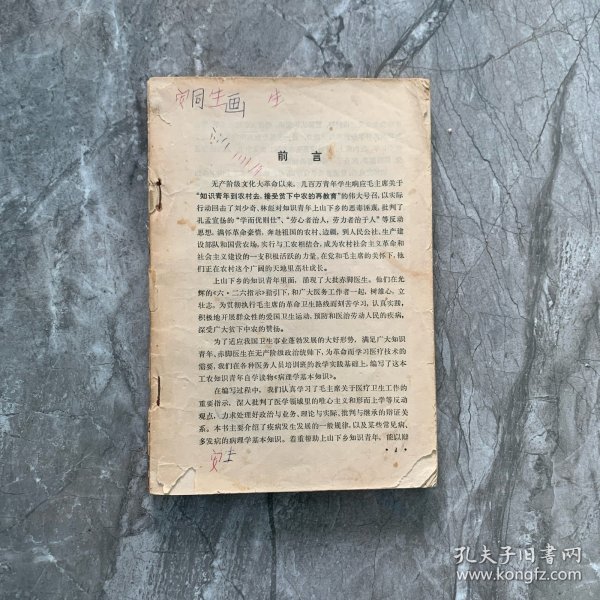 同生画 生
前言
无产阶级文化大革命以来，几百万青年学生响应毛主席关于
“知识青年到农村去，接受贫下中农的再教育”的伟大号召，以实际
行动回击了刘少奇、林彪对知识青年上山下乡的恶毒诬蔑，批判了
孔孟宣扬的“学而优则仕”、“劳心者治人，劳力者治于人”等反动
思想，满怀革命豪情，奔赴祖国的农村、边疆，到人民公社、生产建
设部队和国营农场，实行与工农相结合，成为农村社会主义革命和
社会主义建设的一支积极活跃的力量，在党和毛主席的关怀下，他
们正在农村这个广阔的天地里茁壮成长。
上山下乡的知识青年里面，涌现了大批赤脚医生。他们在光
辉的《六·二六指示》指引下，和广大医务工作者一起，树雄心，立
壮志，为贯彻执行毛主席的革命卫生路线而刻苦学习，认真实践，
积极地开展群众性的爱国卫生运动，预防和医治劳动人民的疾病，
深受广大贫下中农的赞扬。
为了适应我国卫生事业蓬勃发展的大好形势，满足广大知识
青年、赤脚医生在无产阶级政治统帅下，为革命而学习医疗技术的
需要，我们在各种医务人员培训班的教学实践基础上，编写了这本
工农知识青年自学读物《病理学基本知识》。
在编写过程中，我们认真学习了毛主席关于医疗卫生工作的
重要指示，深入批判了医学领域里的唯心主义和形而上学等反动
观点，力求处理好政治与业务、理论与实际、批判与继承的辩证关
系。本书主要介绍了疾病发生发展的一般规律，以及某些常见病、
多发病的病理学基本知识。着重帮助上山下乡知识青年，能以辩
1
孔夫子旧书网
www.kongfz.com